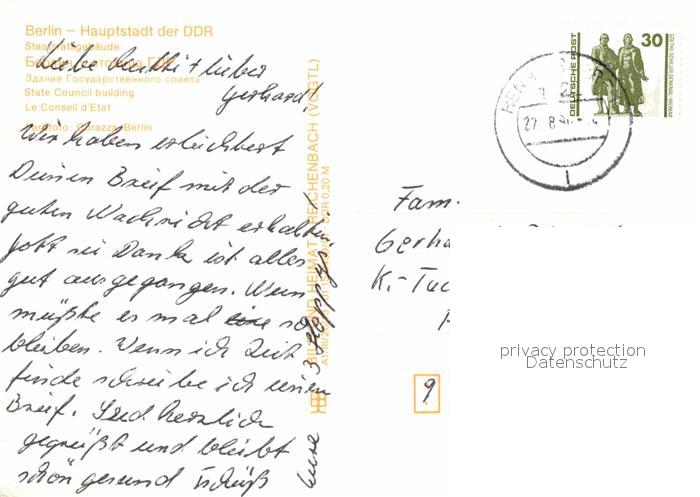 Berlin – Hauptstadt der DDR
Staatsratsgebäude
Здание Государственного совета
State Council building
Le Conseil d'Etat
Farbfoto: Darazza, Berlin
Liebe + lieber
Gerhard!
Wir haben erleichtert
Deinen Breif mit der
guten Nachricht erhalten,
Gott sei Dank ist alles
gut ausgegangen. Nun
müßte es mal so
bleiben. Wenn ich Zeit
finde schreibe ich einen
Brief. Seid herzlich
gegrüßt und bleibt
schön gesund Tschüß
BILD UND HEIMAT REICHENBACH (VOGTL)
DEUTSCHE POST
30
27. 8
Fam.
Gerha
K.-Tuc
9
privacy protection
Datenschutz